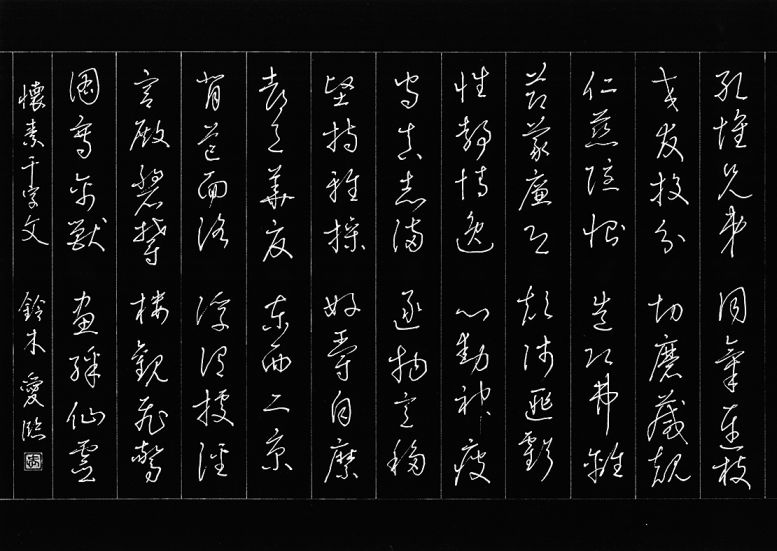 孔懷兄弟 同氣連枝
交友投分 切磨箴規
仁慈隱惻 造次弗離
節義廉退 顛沛匪虧
性靜情逸 心動神疲
守真志滿 逐物意移
堅持雅操 好爵自縻
都邑華夏 東西二京
背芒面洛 浮渭據涇
宮殿磐鬱 樓觀飛驚
圖寫禽獸 畫綵仙靈
懷素千字文 鈴木愛臨